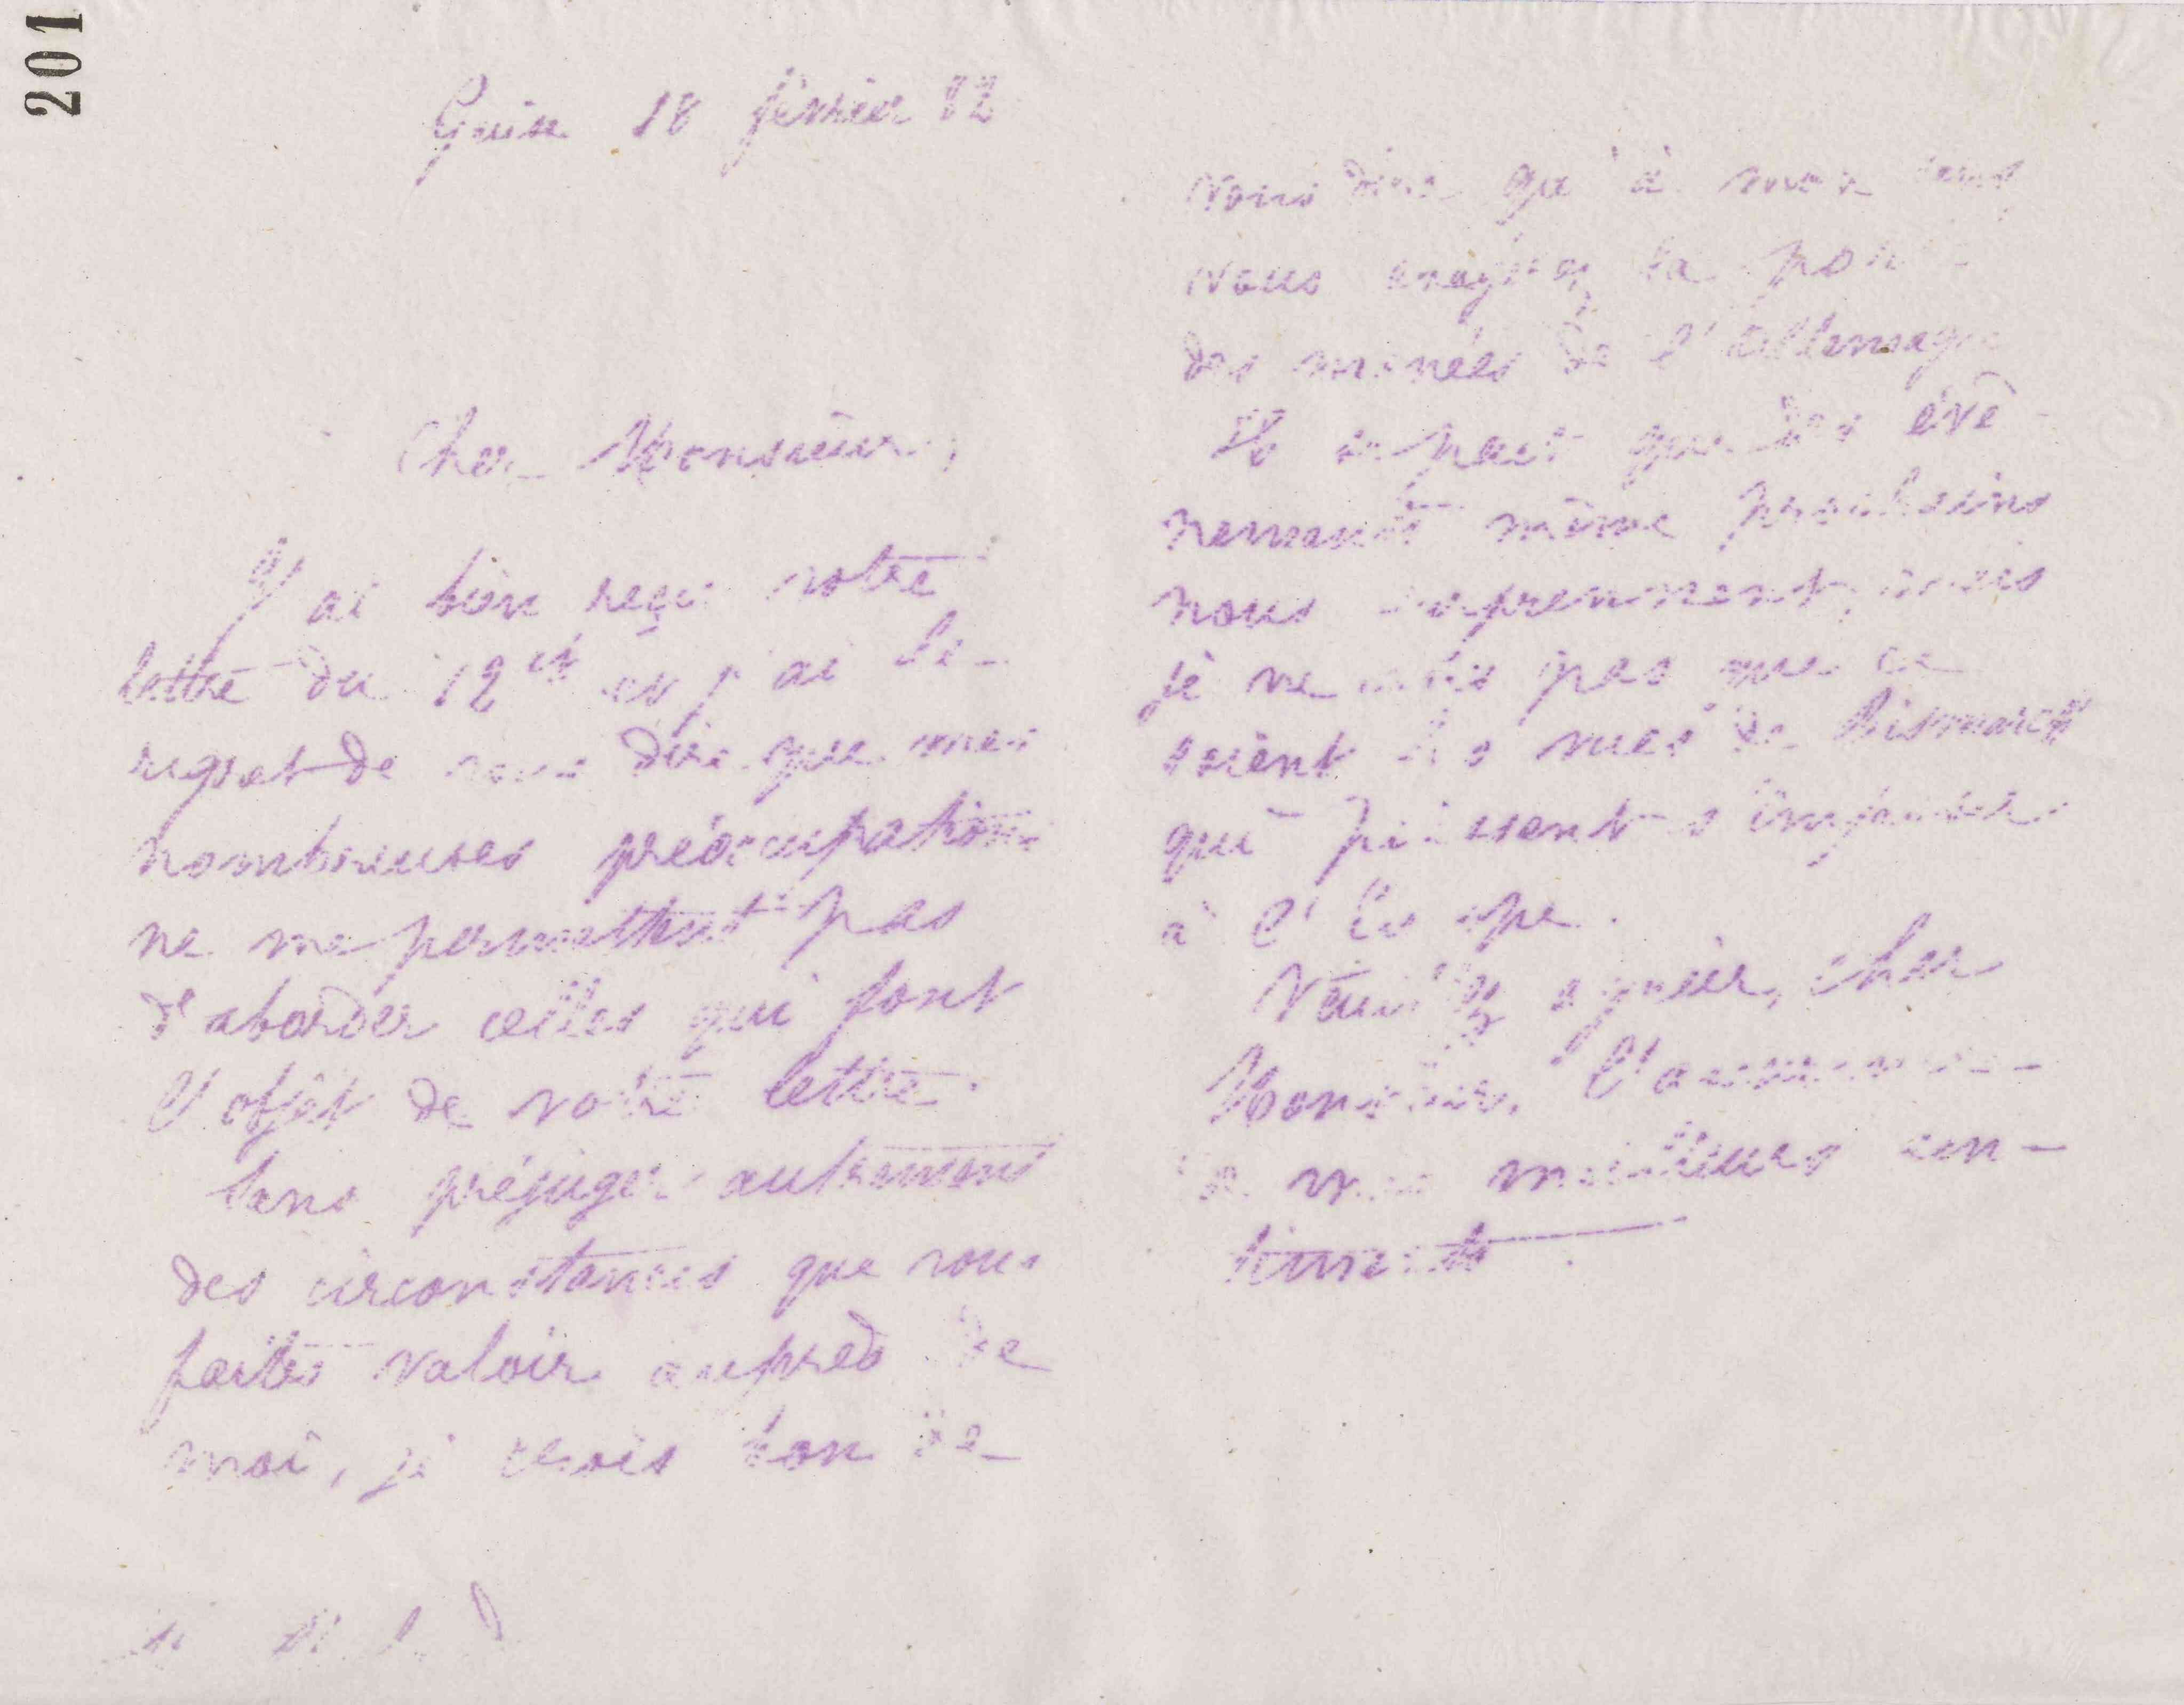 201
Guise 18 février 82
Cher Monsieur,
J'ai bien reçu votre
lettre du 12 ct et j'ai le
regret de vous dire que mes
nombreuses préoccupations
ne me permettent pas
d'aborder celles qui font
l'objet de votre lettre.
Sans préjuger autrement
des circonstances que vous
faites valoir auprès de
moi, je crois bon de
vous dire qu'à mon sens
vous exagérez la
des menées de l'Allemagne
Il se peut que des évé-
nements même prochains
nous surprennent, mais
je ne crois pas que ce
soient les vues de Bismarck
qui puissent s'imposer
à l'Europe.
Veuillez agréer, cher
Monsieur, l'assurance
de mes meilleurs sen-
timents.